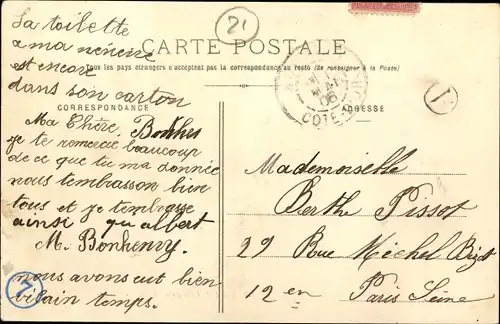 21
la toilette
a ma nénené
est encore
dans son carton
CARTE POSTALE
Tous les pays étrangers n'acceptent pas la correspondance au recto (Se renseigner à la Poste)
CORRESPONDANCE
ADRESSE
COTE
06
Ma Chère
je te remercie beaucoup
de ce que tu ma donnée
nous tembrasson bien
tous et je tembrasse
ainsi qu albert
M. Bonhenry
nous avons eut bien
vilain temps.
7
Mademoiselle
Berthe Pissot
29 Rue Michel Bizot
12 en Paris Seine